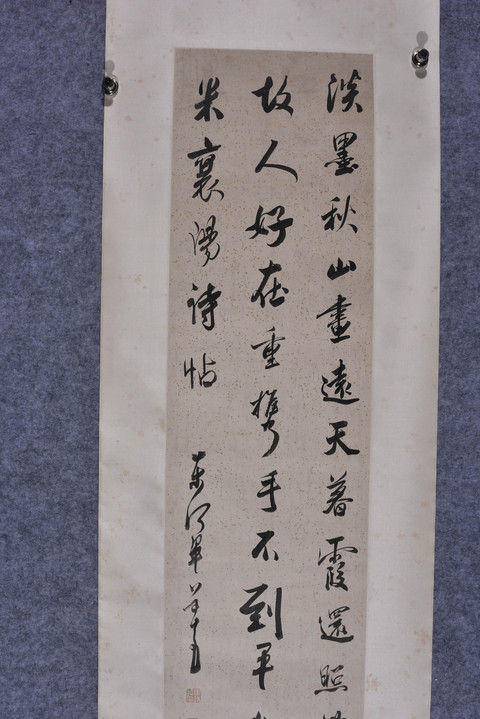 淡墨秋山畫遠天暮霞還照
故人好在重攜手不到平
米襄陽詩帖